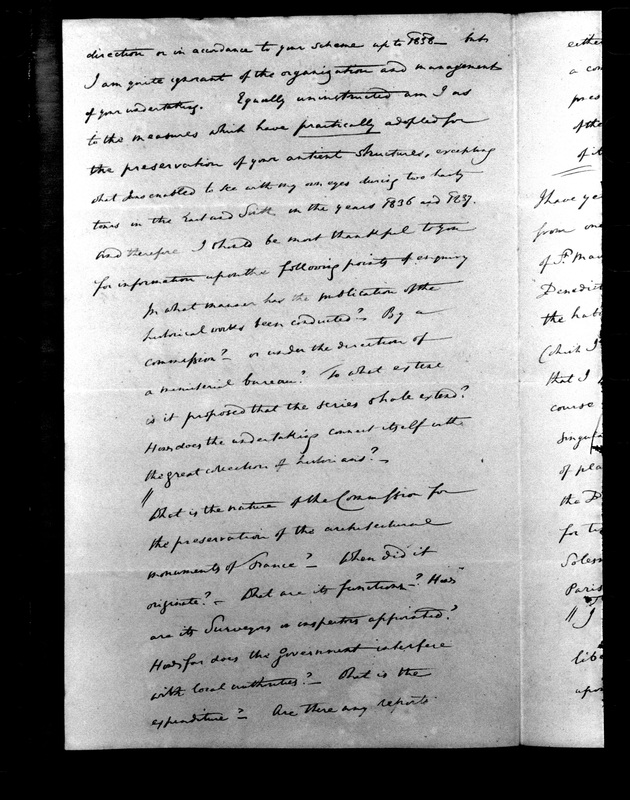 direction or in accordance to your scheme up to 1838 — but
I am quite ignorant of the organization and management
of your undertaking. Equally uninstructed am I as
to the measures which have practically adopted for
the preservation of your antient structures, excepting
what I was enabled to see with my own eyes during two hasty
tours in the East and South in the years 1836 and 1837.
And therefore I should be most thankful to you
for information upon the following points of enquiry
In what manner has the publication of the
historical works been conducted? — By a
commission? — or under the direction of
a ministerial bureau? To what extent
is it proposed that the series shall extend?
How does the undertaking connect itself with
the great collection of historians? —
" What is the nature of the Commission for
the preservation of the architectural
monuments of France? — When did it
originate? — What are its functions? How
are its Surveyors or inspectors appointed?
How far does the government interfere
with local authorities? — What is the
expenditure? — Are there any reports
either
a con
pres
of the
of it
I have ye
from one
of St. Mau
Benedict
the hab
(which I
that I
course
singula
of pla
the D
for tw
Solesm
Paris
" I
libe
upon